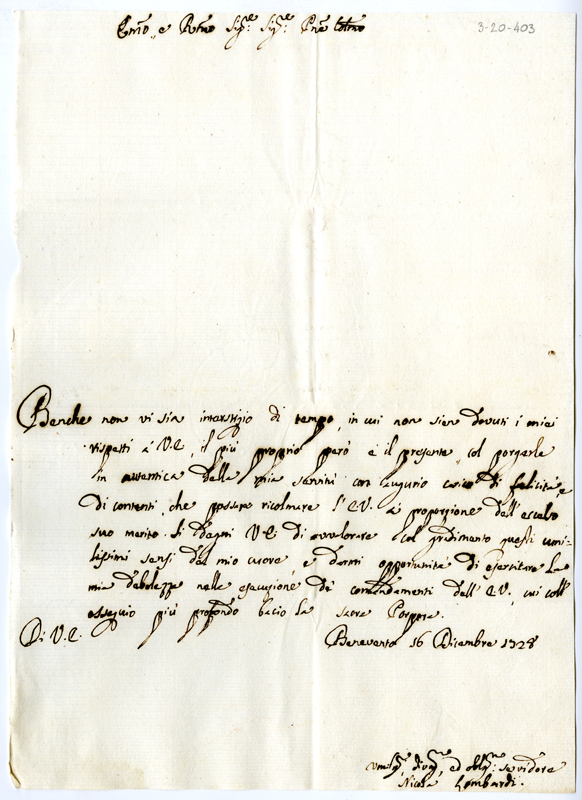 Em̃o, e Rm̃o Sig.re Sig.re Pr̃ne Col̃mo
3-20-403
Benche non vi sia interstizio di tempo, in cui non sien dovuti i miei
rispetti à V.E., il più proprio però è il presente col porgerle
in autentica della mia servitù con augurio carico di felicità, e
di contenti, che possano ricolmare l'E.V. à proporzione dell'eccelso
suo merito. Si degni V.E. di avvalorare col gradimento questi umi-
lissimi sensi del mio cuore, e darmi opportunità di esercitare la
mia debolezza nelle esecuzione de' comandamenti dell'E.V., cui coll'
ossequio più profondo bacio la sacra Porpora.
Di V.E.
Benevento 16 Dicembre 1728
Umil.mo, div.mo, ed obl.mo servidore
Nicola Lombardi.